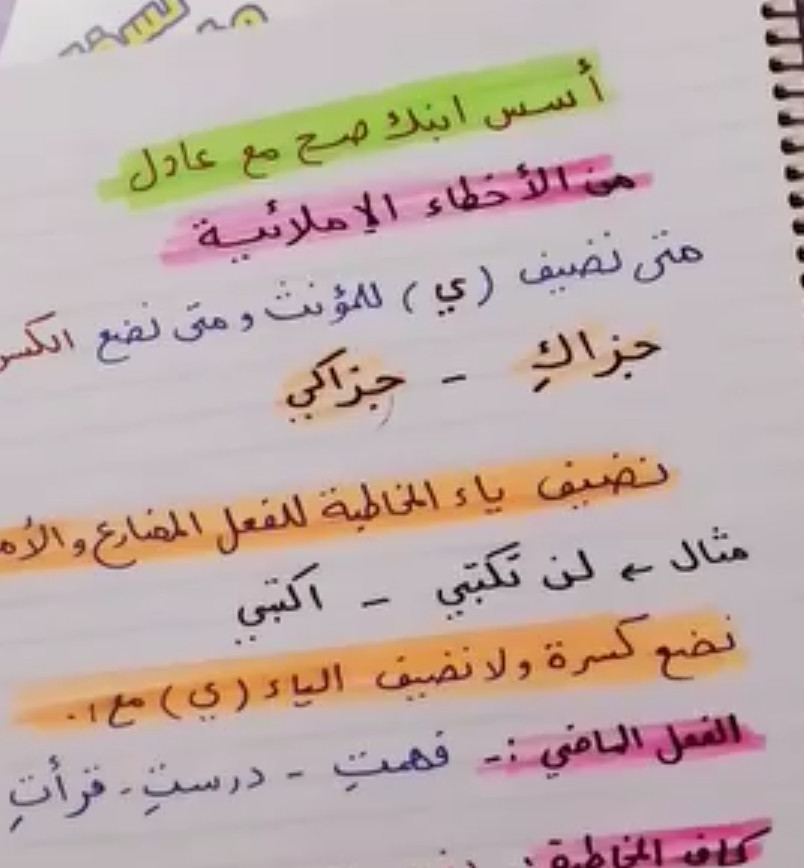 أسس ابنك صح مع عادل
من الأخطاء الإملائية
متى نضيف (ي) للمؤنث ومتى نضع الكسر
جزاكِ - جزاكي
نضيف ياء المخاطبة للفعل المضارع والأم
مثال ← لن تكتبي - اكتبي
نضع كسرة ولا نضيف الياء (ي) مع :.
الفعل الماضي :- فهمتِ - درستِ - قرأتِ
كاف المخاطبة :